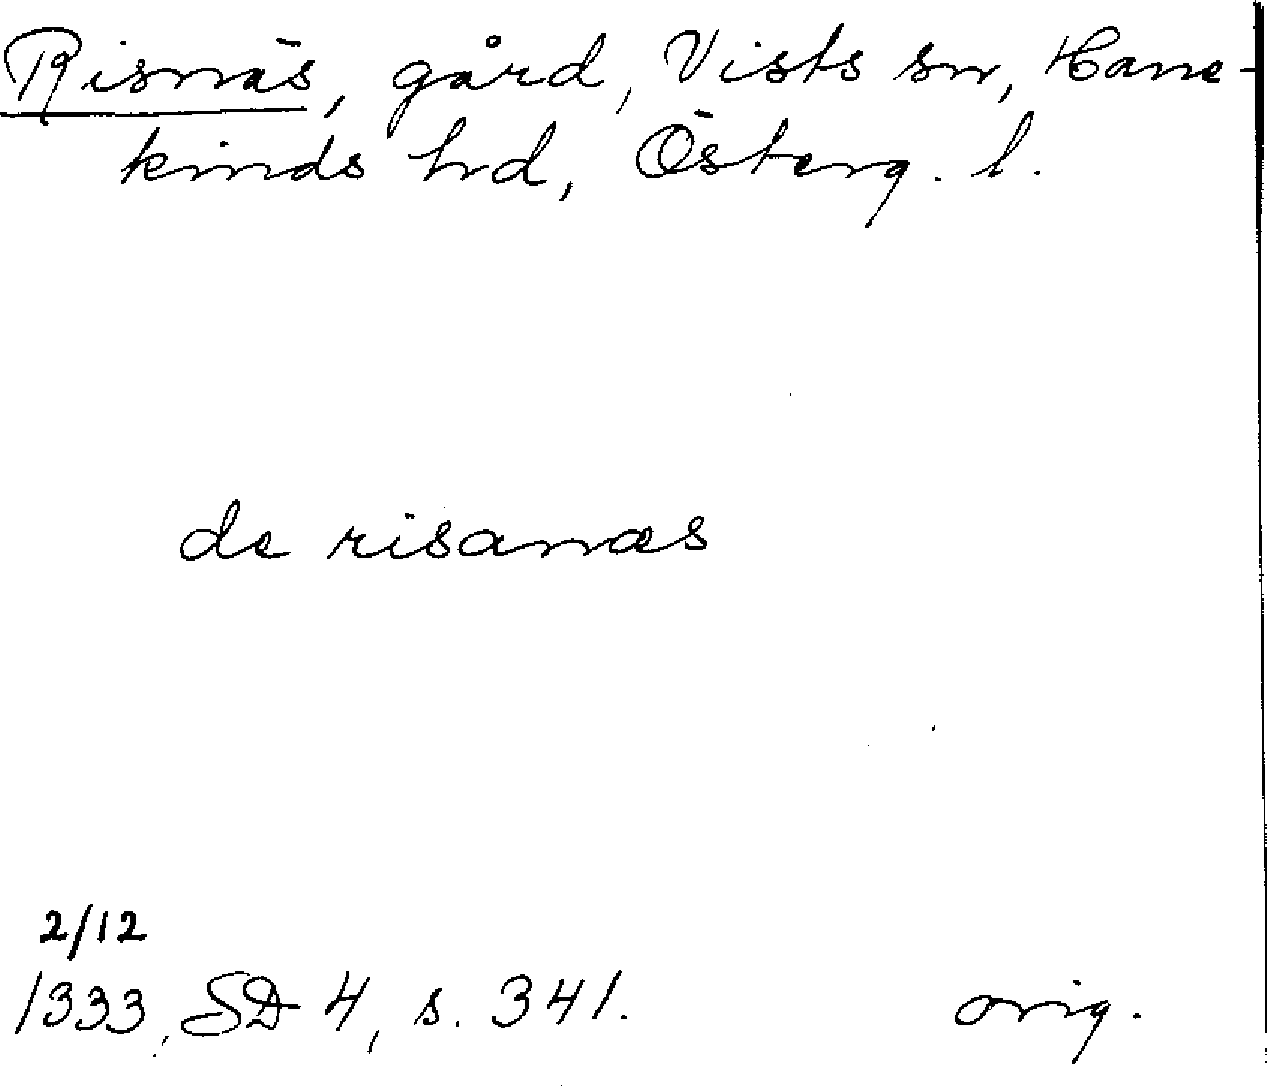 Risnäs, gård, Vists sn, Hane-
kinds hd, Österg. l.
de risanæs
2/12
1333, SD 4, s. 341. orig.